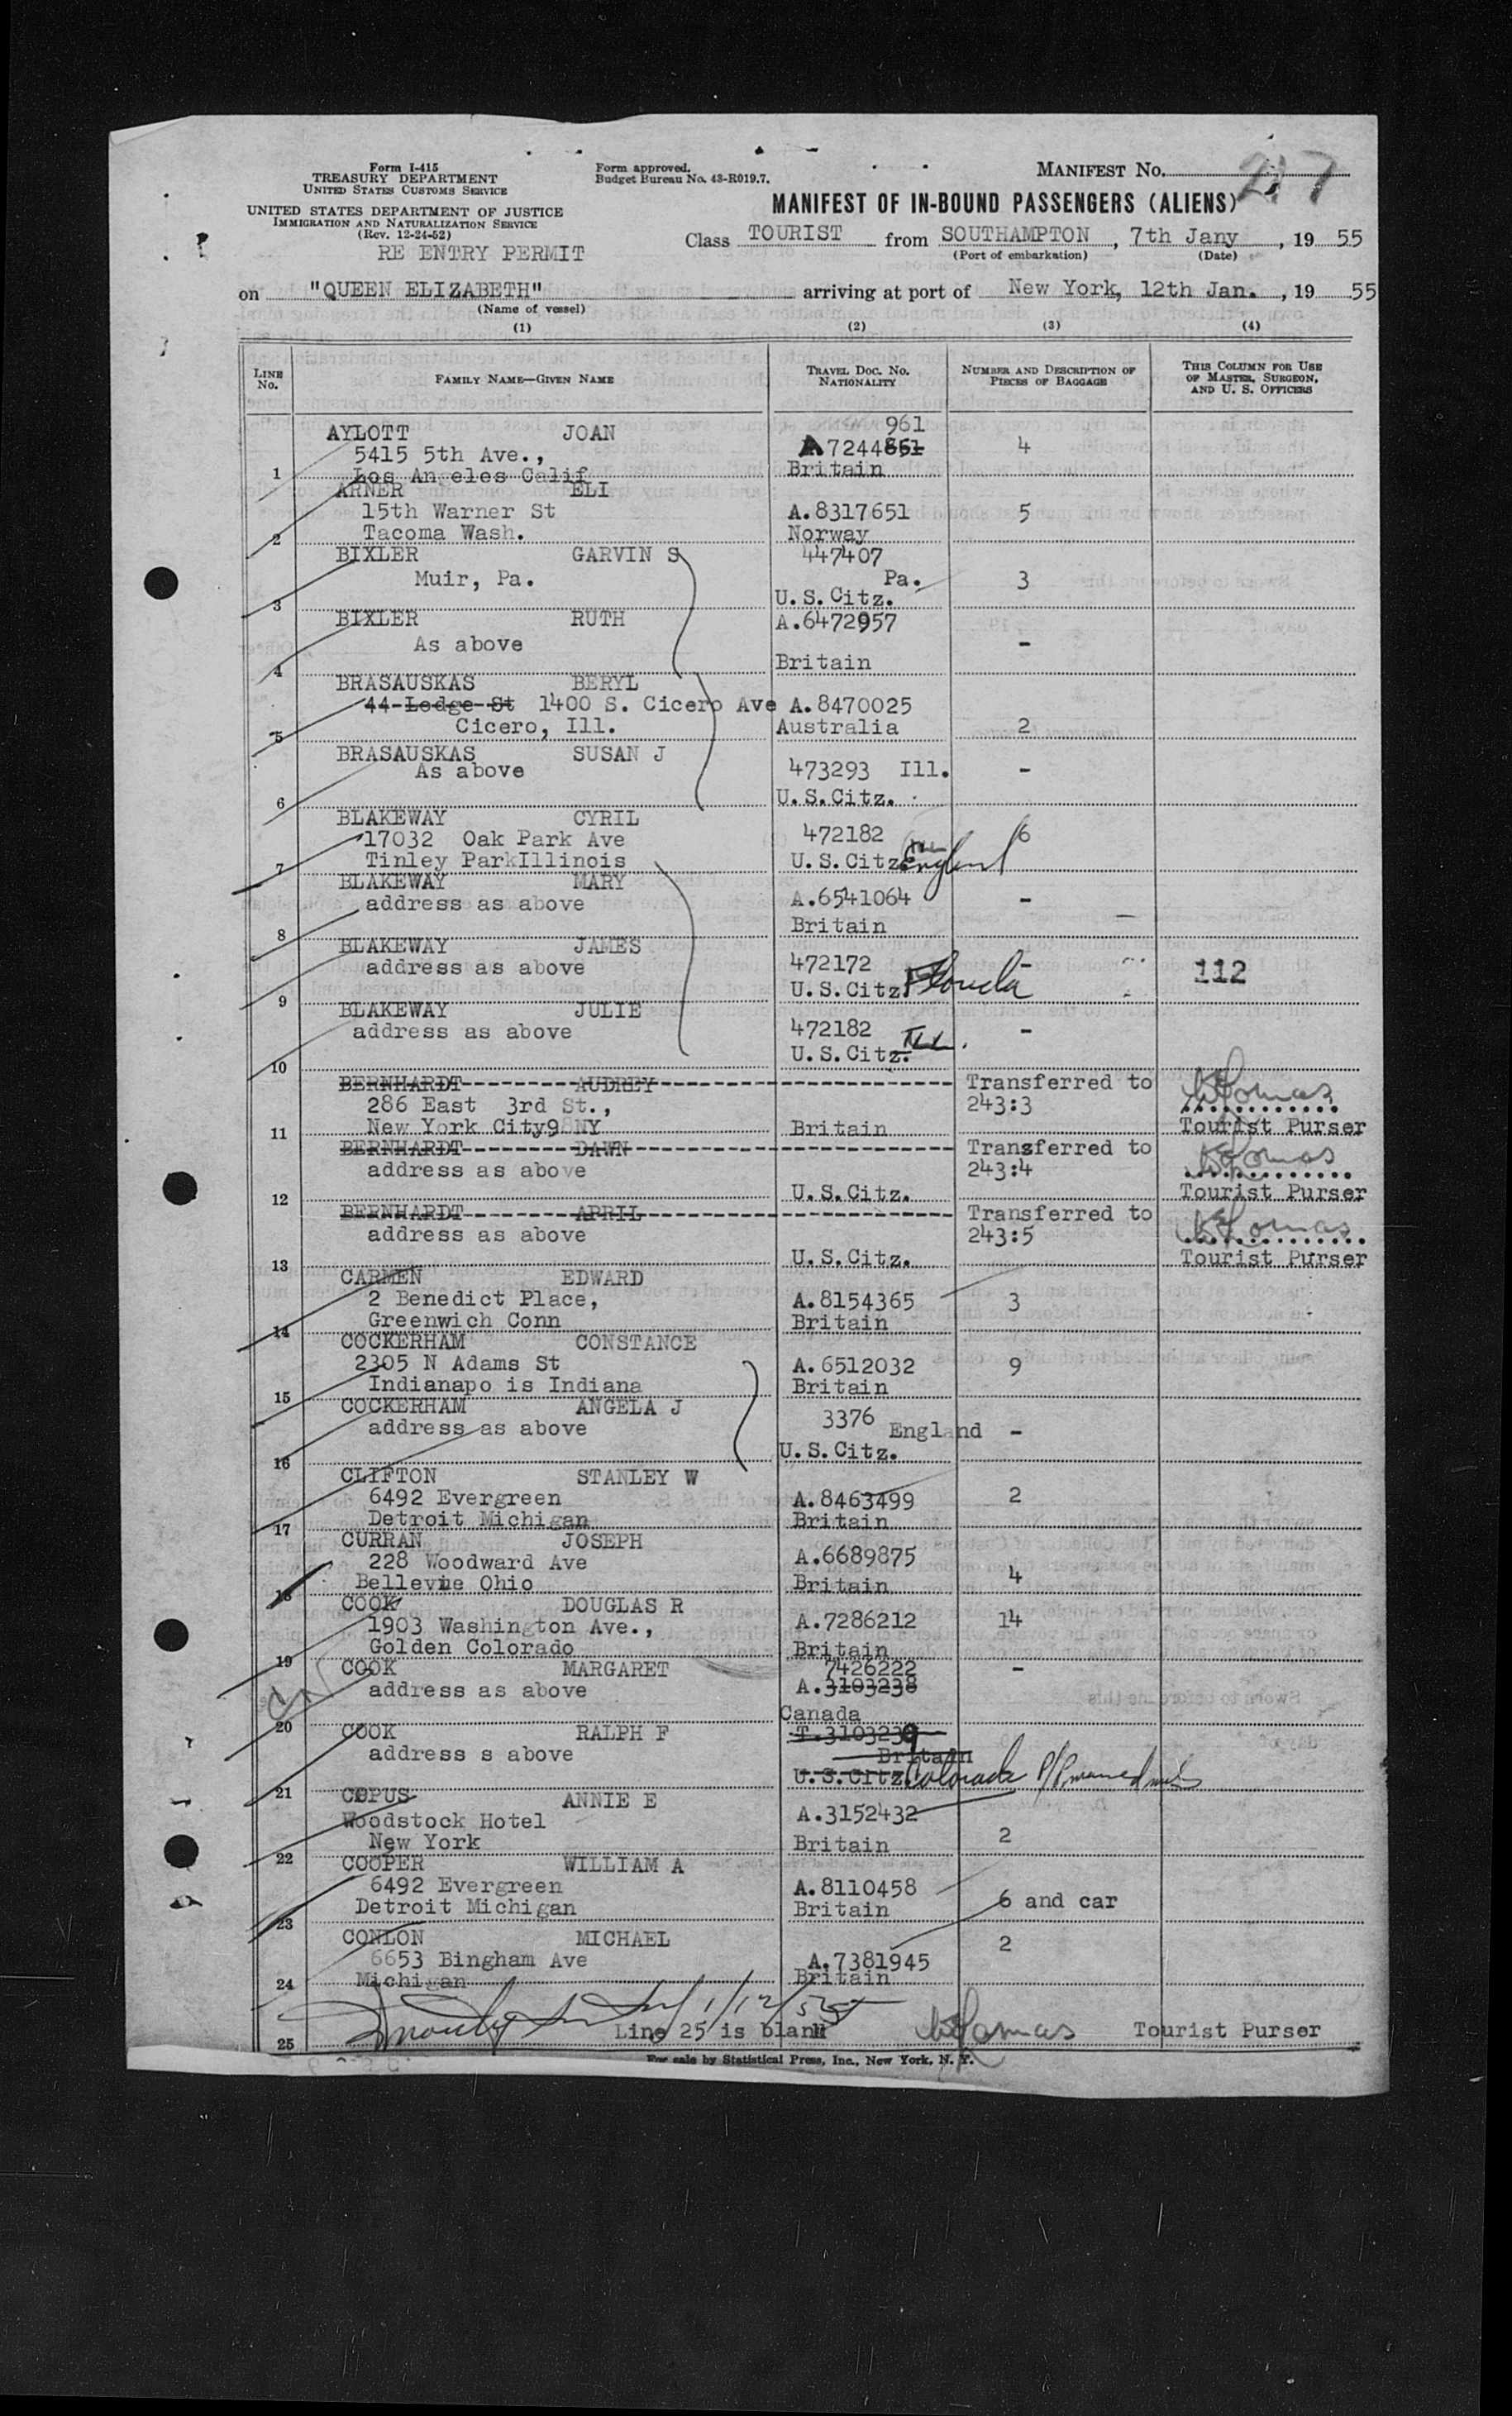 Form I-415
TREASURY DEPARTMENT
UNITED STATES CUSTOMS SERVICE
UNITED STATES DEPARTMENT OF JUSTICE
IMMIGRATION AND NATURALIZATION SERVICE
(Rev. 12-24-52)
RE ENTRY PERMIT
Form approved.
Budget Bureau No. 43-R019.7.
MANIFEST NO. 217
MANIFEST OF IN-BOUND PASSENGERS (ALIENS)
Class TOURIST from SOUTHAMPTON, 7th Jany, 19 55
(Port of embarkation) (Date)
on "QUEEN ELIZABETH" arriving at port of New York, 12th Jan., 19 55
(Name of vessel)
(1) (2) (3) (4)
LINE No. FAMILY NAME—GIVEN NAME TRAVEL DOC. NO. NATIONALITY NUMBER AND DESCRIPTION OF PIECES OF BAGGAGE THIS COLUMN FOR USE OF MASTER, SURGEON, AND U. S. OFFICERS
961
AYLOTT JOAN A7244861 4
5415 5th Ave.,
1 Los Angeles Calif Britain
ARNER ELI
15th Warner St A.8317651 5
2 Tacoma Wash. Norway
BIXLER GARVIN S 447407
Muir, Pa. Pa. 3
3 U.S.Citz.
BIXLER RUTH A.6472957
As above -
4 Britain
BRASAUSKAS BERYL
44 Lodge St 1400 S. Cicero Ave A.8470025
5 Cicero, Ill. Australia 2
BRASAUSKAS SUSAN J
As above 473293 Ill. -
6 U.S.Citz.
BLAKEWAY CYRIL 472182 6
17032 Oak Park Ave
7 Tinley ParkIllinois U.S.Citz. England
BLAKEWAY MARY
address as above A.6541064 -
8 Britain
BLAKEWAY JAMES
address as above 472172 -
9 U.S.Citz. Florida 112
BLAKEWAY JULIE
address as above 472182 -
10 U.S.Citz. ILL.
BERNHARDT AUDREY Transferred to
286 East 3rd St., 243:3
11 New York City98NY Britain Tourist Purser
BERNHARDT DAWN Transferred to
address as above 243:4
12 U.S.Citz. Tourist Purser
BERNHARDT APRIL Transferred to
address as above 243:5
13 U.S.Citz. Tourist Purser
CARMEN EDWARD
2 Benedict Place, A.8154365 3
14 Greenwich Conn Britain
COCKERHAM CONSTANCE
2305 N Adams St A.6512032 9
15 Indianapo is Indiana Britain
COCKERHAM ANGELA J 3376
address as above England -
16 U.S.Citz.
CLIFTON STANLEY W
6492 Evergreen A.8463499 2
17 Detroit Michigan Britain
CURRAN JOSEPH
228 Woodward Ave A.6689875
18 Bellevue Ohio Britain 4
COOK DOUGLAS R
1903 Washington Ave., A.7286212 14
19 Golden Colorado Britain
COOK MARGARET 7426222 -
address as above A.3103238
20 Canada
COOK RALPH F T.3103239
address s above Britain
21 U.S.Citz. Colorado
COPUS ANNIE E
Woodstock Hotel A.3152432
22 New York Britain 2
COOPER WILLIAM A
6492 Evergreen A.8110458
23 Detroit Michigan Britain 6 and car
CONLON MICHAEL 2
6653 Bingham Ave A.7381945
24 Michigan Britain
1/12/55
25 Line 25 is blank Tourist Purser
For sale by Statistical Press, Inc., New York, N. Y.